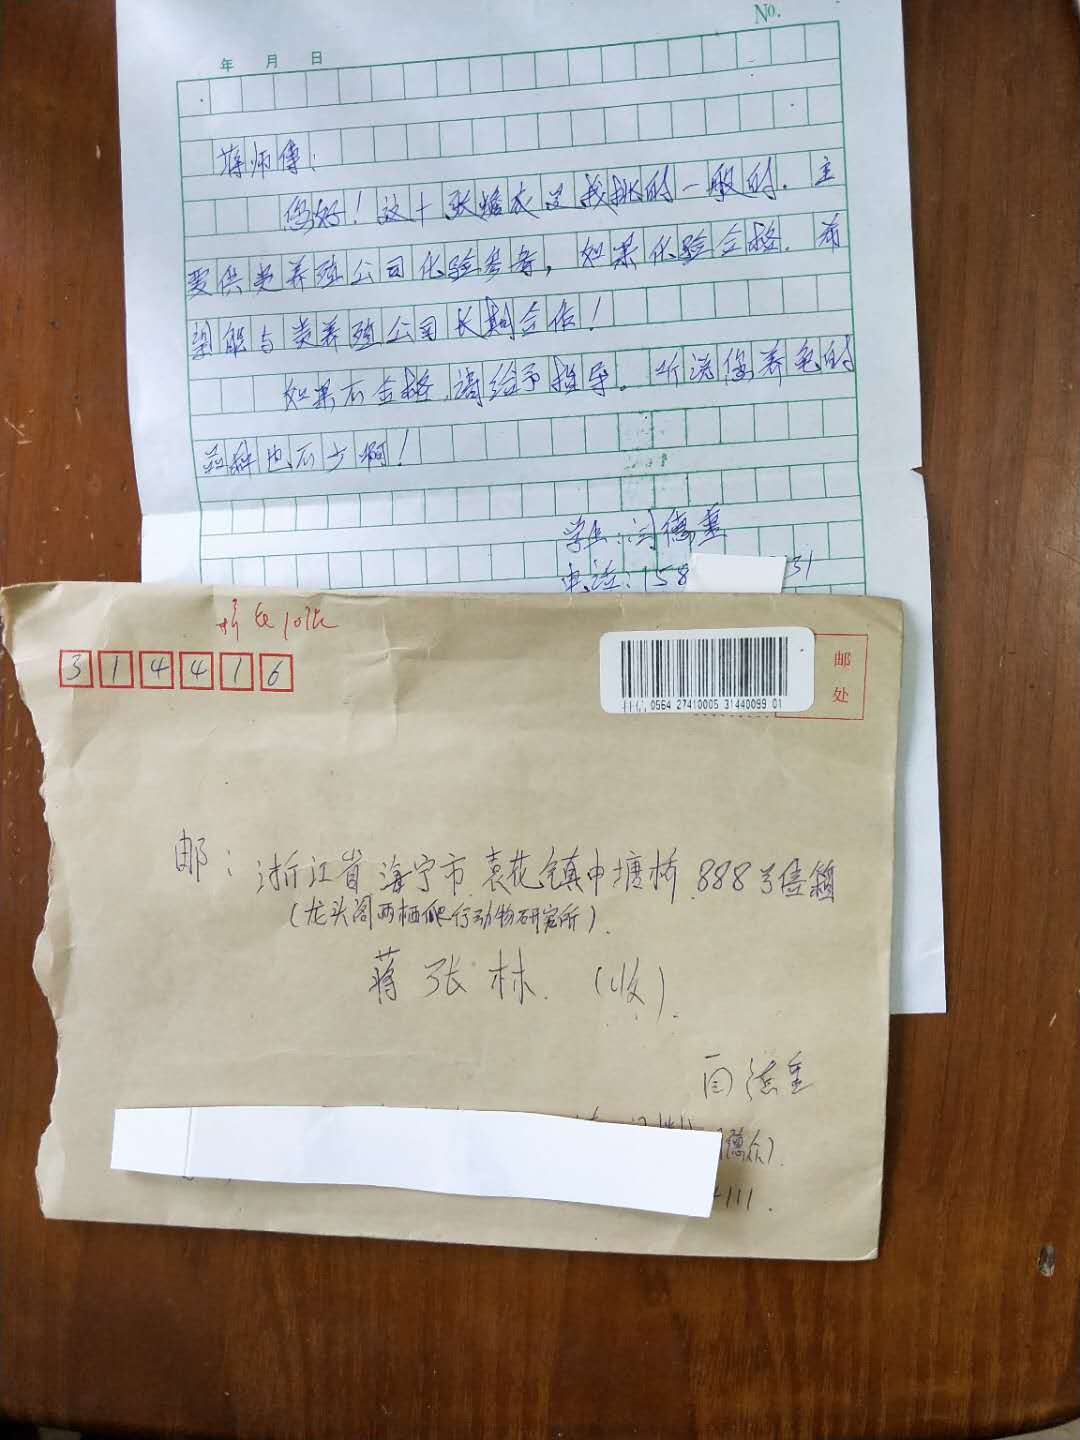 No.
年 月 日
蒋师傅:
您好!这十张蟾衣是我挑的一般的.主
要供贵养殖公司化验参考,如果化验合格.希
望能与贵养殖公司长期合作!
如果不合格.请给予指导。听说您养龟的
也不少啊!
学生:闫德重
电话:158 31
10张
314416
邮
处
0564 27410005 31440099 01
邮:浙江省海宁市袁花镇中塘桥888号信箱
(龙头阁两栖爬行动物研究所).
蒋张林.(收).
闫德重
德众).
4111.